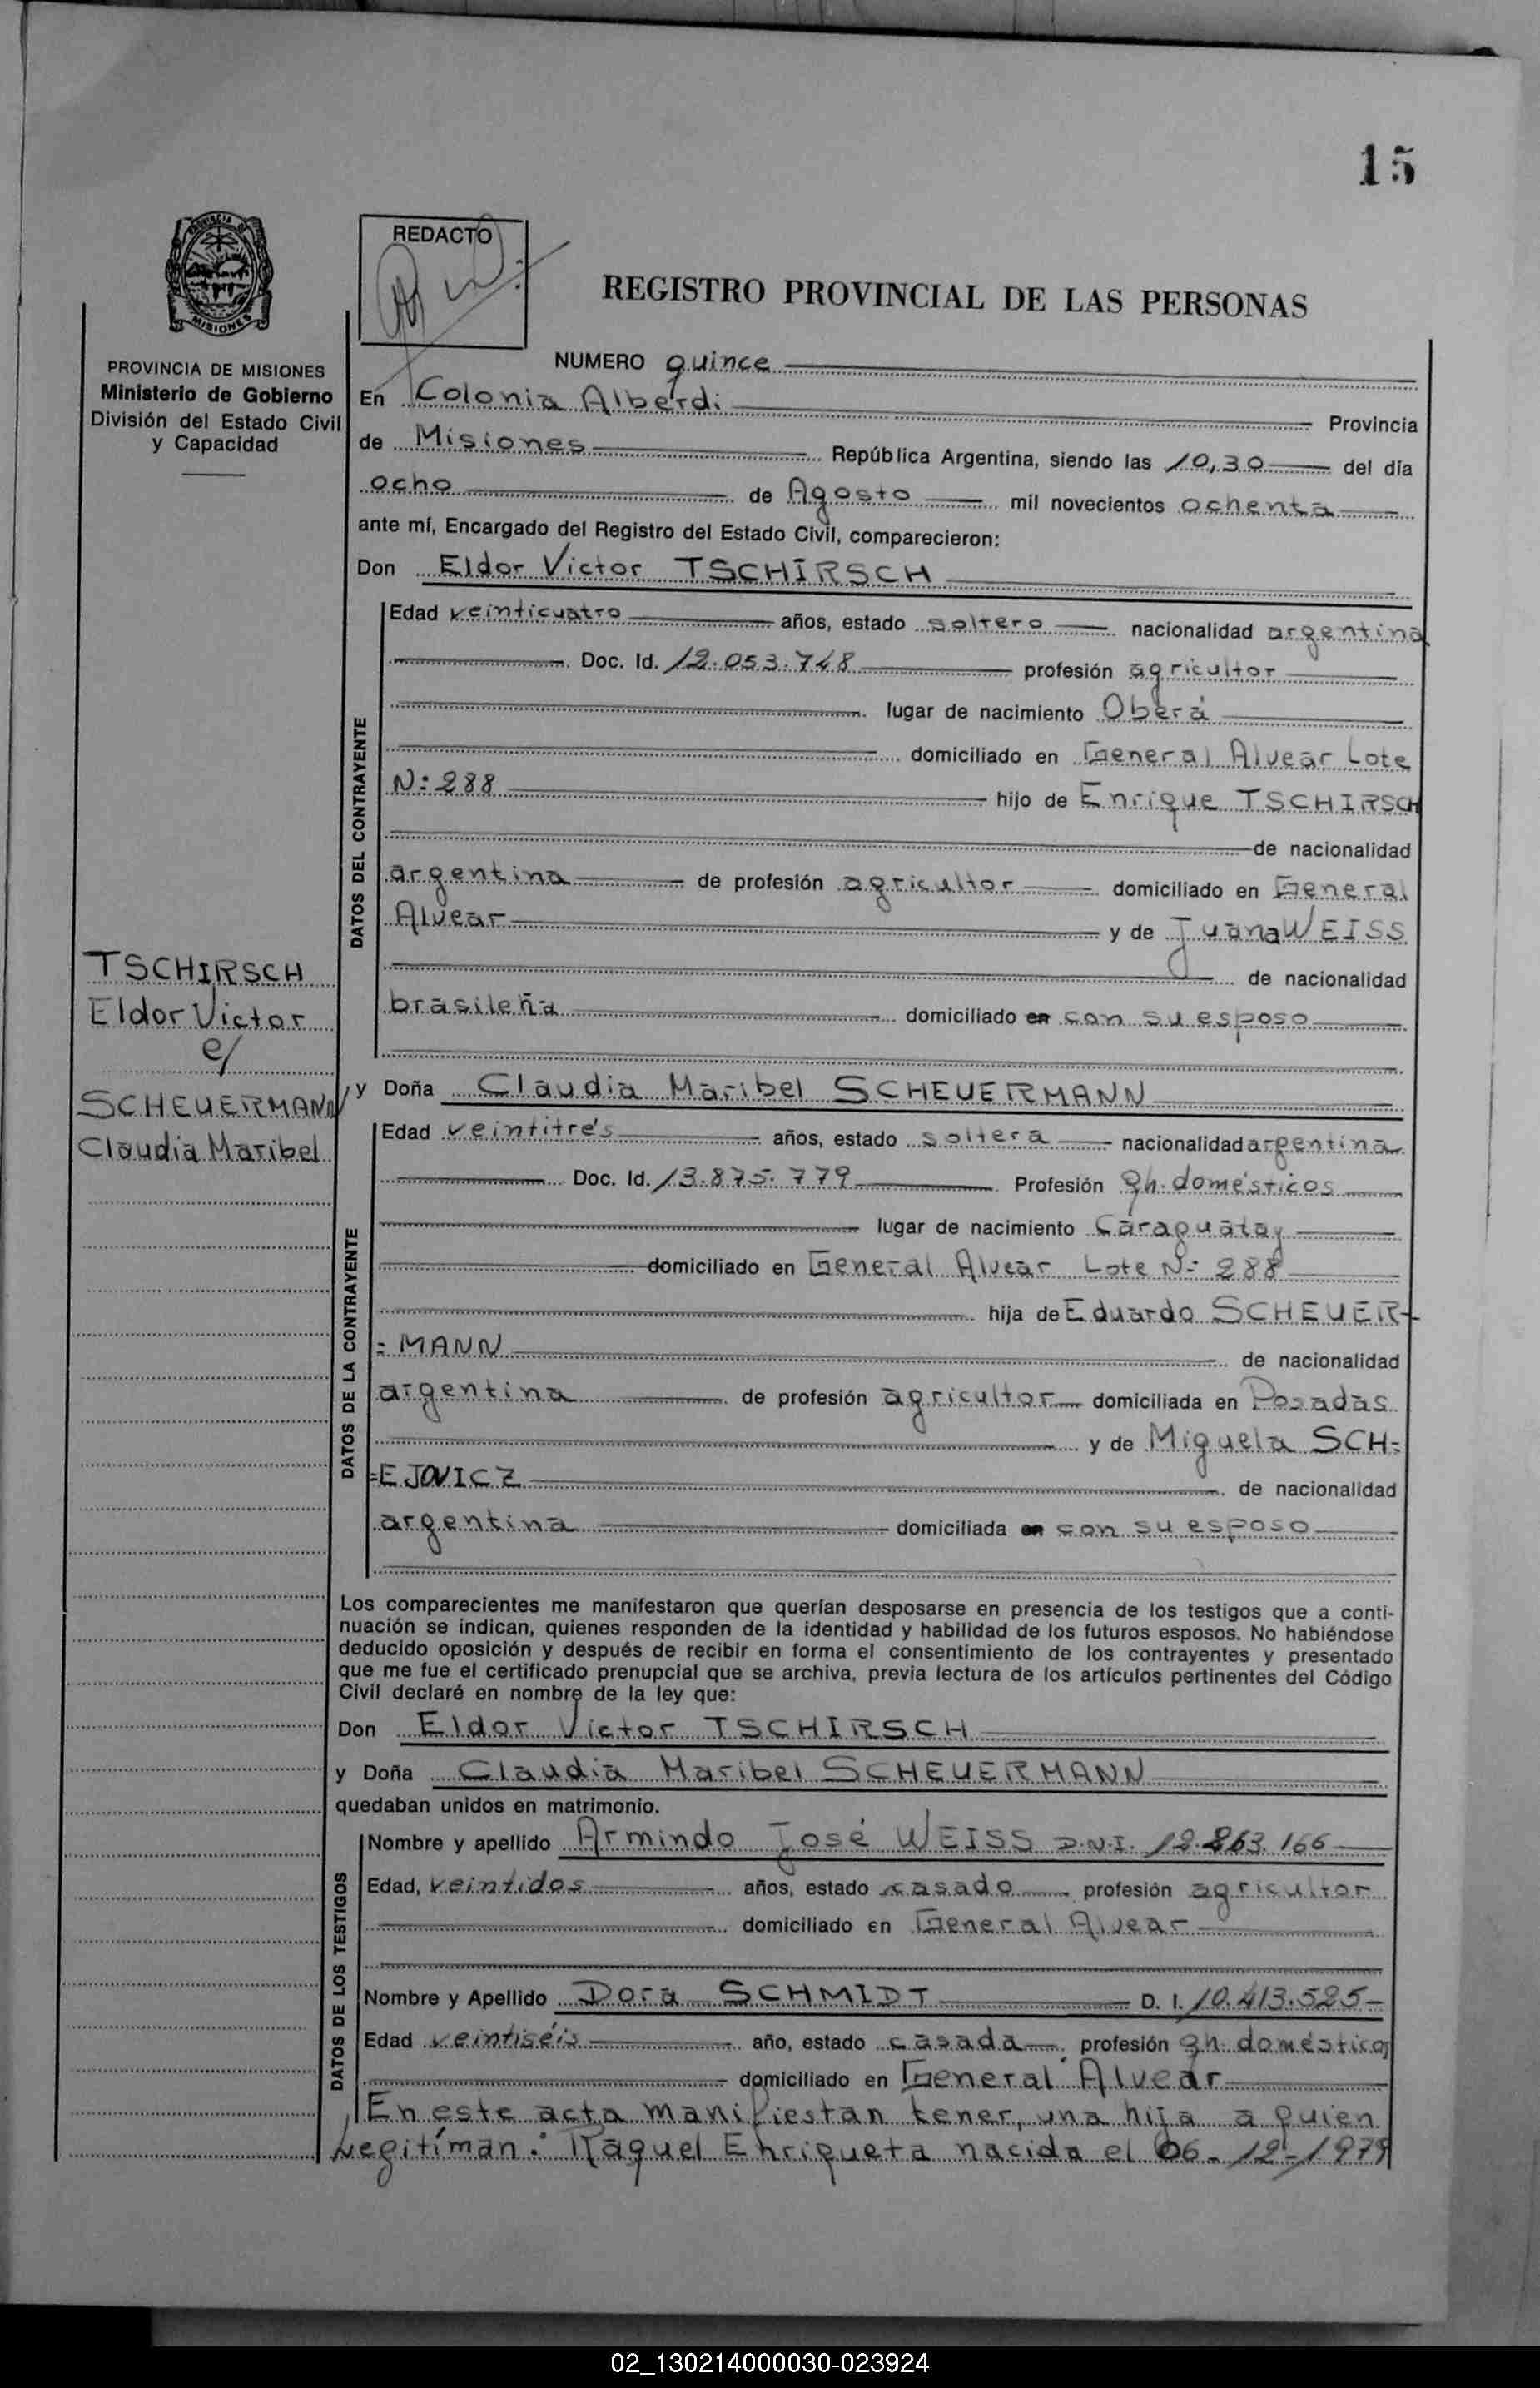 15
PROVINCIA DE MISIONES
PROVINCIA DE MISIONES
Ministerio de Gobierno
División del Estado Civil
y Capacidad
REDACTO
REGISTRO PROVINCIAL DE LAS PERSONAS
NUMERO quince
En Colonia Alberdi Provincia
de Misiones República Argentina, siendo las 10,30 del día
ocho de Agosto mil novecientos ochenta
ante mí, Encargado del Registro del Estado Civil, comparecieron:
Don Eldor Victor TSCHIRSCH
DATOS DEL CONTRAYENTE
Edad veinticuatro años, estado soltero nacionalidad argentina
Doc. Id. 12.053.748 profesión agricultor
lugar de nacimiento Oberá
domiciliado en General Alvear Lote
N:288 hijo de Enrique TSCHIRSCH
de nacionalidad
argentina de profesión agricultor domiciliado en General
Alvear y de Juana WEISS
de nacionalidad
brasileña domiciliado en con su esposo
TSCHIRSCH
Eldor Victor
c/
SCHEUERMANN
Claudia Maribel
y Doña Claudia Maribel SCHEUERMANN
DATOS DE LA CONTRAYENTE
Edad veintitrés años, estado soltera nacionalidad argentina
Doc. Id. 13.875.779 Profesión qh. domésticos
lugar de nacimiento Caraguatay
domiciliado en General Alvear Lote N: 288
hija de Eduardo SCHEUER-
=MANN de nacionalidad
argentina de profesión agricultor domiciliada en Posadas
y de Miguela SCH=
=EJOVICZ de nacionalidad
argentina domiciliada en con su esposo
Los comparecientes me manifestaron que querían desposarse en presencia de los testigos que a conti-
nuación se indican, quienes responden de la identidad y habilidad de los futuros esposos. No habiéndose
deducido oposición y después de recibir en forma el consentimiento de los contrayentes y presentado
que me fue el certificado prenupcial que se archiva, previa lectura de los artículos pertinentes del Código
Civil declaré en nombre de la ley que:
Don Eldor Victor TSCHIRSCH
y Doña Claudia Maribel SCHEUERMANN
quedaban unidos en matrimonio.
DATOS DE LOS TESTIGOS
Nombre y apellido Armindo José WEISS D.N.I. 12.263.166
Edad, veintidos años, estado casado profesión agricultor
domiciliado en General Alvear
Nombre y Apellido Dora SCHMIDT D. I. 10.413.525-
Edad veintiséis año, estado casada profesión qh. domésticos
domiciliado en General Alvear
En este acta manifiestan tener, una hija a quien
Legitíman: Raquel Enriqueta nacida el 06-12-1979
02_130214000030-023924